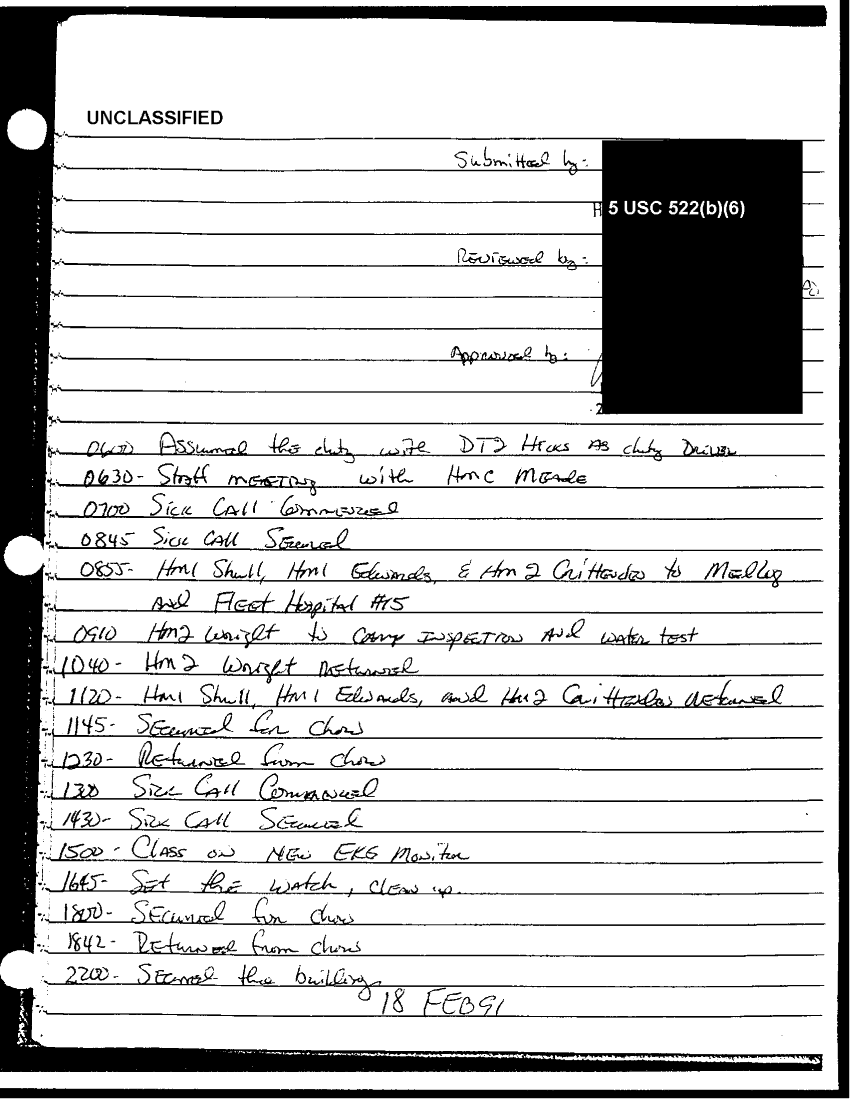 UNCLASSIFIED
Submitted by:
5 USC 522(b)(6)
Reviewed by:
Approved by:
0600 Assumed the duty with DT2 Hicks as duty Driver
0630- Staff meeting with HMC Meade
0700 Sick Call Commenced
0845 Sick Call Secured
0855- HM1 Shull, HM1 Edwards, & HM2 Crittenden to
and Fleet Hospital #15
0910 HM2 Wright to camp inspection and water test
1040- HM2 Wright Returned
1120- HM1 Shull, HM1 Edwards, and HM2 Crittenden returned
1145- Secured for chow
1230- Returned from chow
1300 Sick Call Commenced
1430- Sick Call Secured
1500- Class on New EKG Monitor
1645- Set the watch, clean up.
1800- Secured for chow
1842- Returned from chow
2200- Secured the building
18 FEB 91